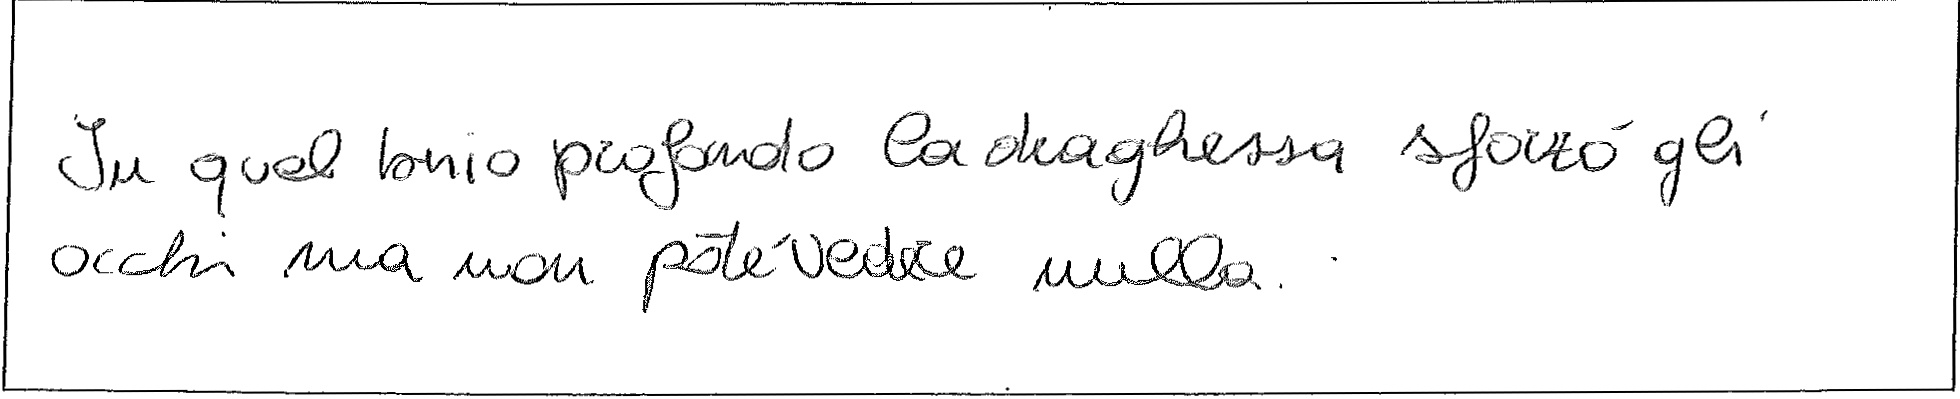 In quel bnio profondo la draghessa sforzó gli
occhi ma non poté vedere nulla.